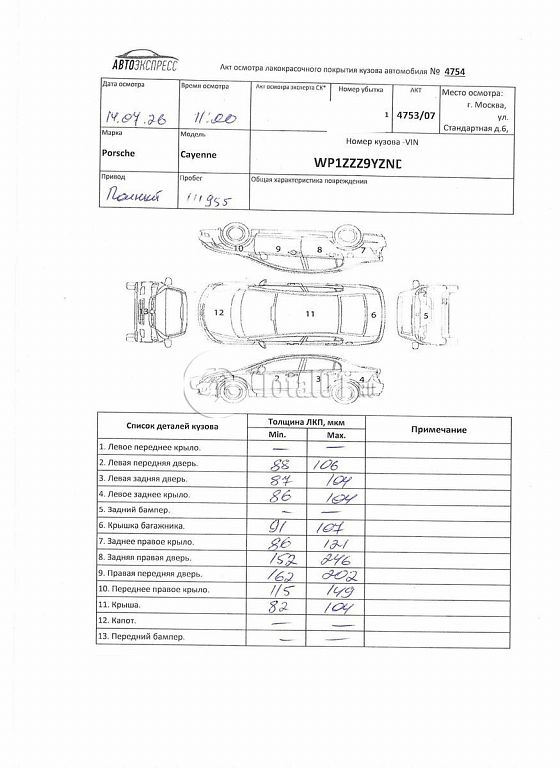 АВТОЭКСПРЕСС
Акт осмотра лакокрасочного покрытия кузова автомобиля № 4754
Дата осмотра Время осмотра Акт осмотра эксперта СК* Номер убытка АКТ Место осмотра:
14.07.26 11:00 1 4753/07 г. Москва,
ул.
Стандартная д.6,
Марка Модель Номер кузова -VIN
Porsche Cayenne WP1ZZZ9YZND
Привод Пробег Общая характеристика повреждений
Полный 111955
10 9 8 7
13 12 11 6 5
1 2 3 4
Total01
Список деталей кузова Толщина ЛКП, мкм Примечание
Min. Max.
1. Левое переднее крыло. — —
2. Левая передняя дверь. 88 106
3. Левая задняя дверь. 87 104
4. Левое заднее крыло. 86 104
5. Задний бампер. — —
6. Крышка багажника. 91 107
7. Заднее правое крыло. 86 121
8. Задняя правая дверь. 152 246
9. Правая передняя дверь. 162 202
10. Переднее правое крыло. 115 149
11. Крыша. 82 104
12. Капот. — —
13. Передний бампер. — —